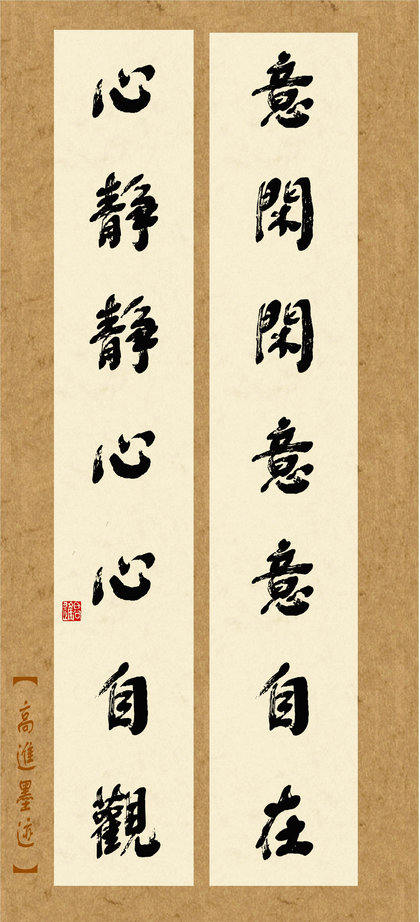 意閑閑意意自在
心靜靜心心自觀
【高進墨迹】